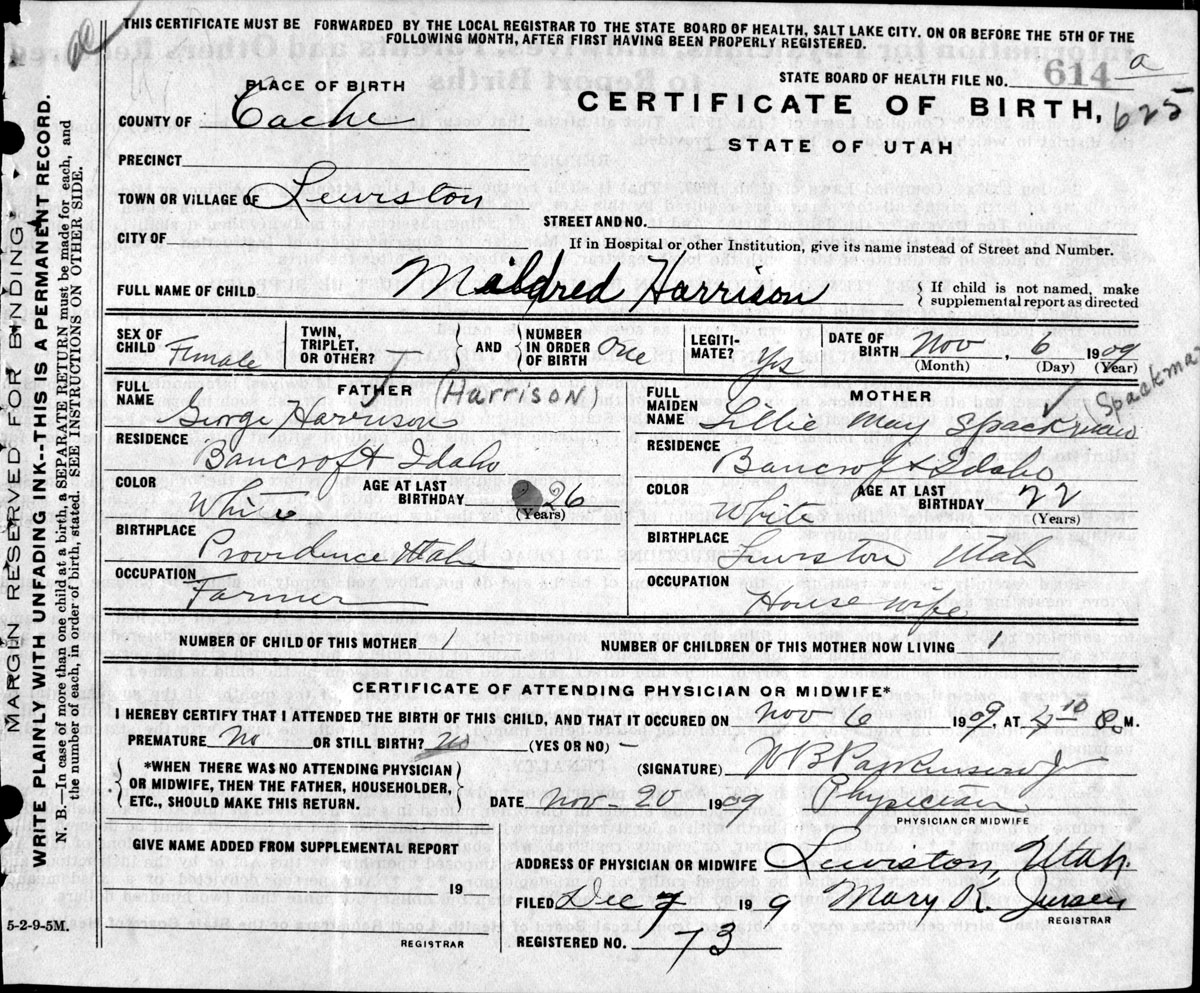 THIS CERTIFICATE MUST BE FORWARDED BY THE LOCAL REGISTRAR TO THE STATE BOARD OF HEALTH, SALT LAKE CITY. ON OR BEFORE THE 5TH OF THE
FOLLOWING MONTH, AFTER FIRST HAVING BEEN PROPERLY REGISTERED.
STATE BOARD OF HEALTH FILE NO. 614 a
625
PLACE OF BIRTH
CERTIFICATE OF BIRTH,
STATE OF UTAH
COUNTY OF Cache
PRECINCT
TOWN OR VILLAGE OF Lewiston
STREET AND NO.
CITY OF
If in Hospital or other Institution, give its name instead of Street and Number.
FULL NAME OF CHILD Mildred Harrison
{ If child is not named, make
supplemental report as directed
SEX OF CHILD Female
TWIN, TRIPLET, OR OTHER?
} AND {
NUMBER IN ORDER OF BIRTH One
LEGITI- MATE? Yes
DATE OF BIRTH Nov, 6 1909
(Month) (Day) (Year)
FATHER
Harrison
FULL NAME George Harrison
RESIDENCE
Bancroft Idaho
COLOR White
AGE AT LAST BIRTHDAY 26
(Years)
BIRTHPLACE
Providence Utah
OCCUPATION
Farmer
MOTHER
Spackman
FULL MAIDEN NAME Lillie May Spackman
RESIDENCE
Bancroft Idaho
COLOR White
AGE AT LAST BIRTHDAY 22
(Years)
BIRTHPLACE
Lewiston Utah
OCCUPATION
House wife
NUMBER OF CHILD OF THIS MOTHER 1
NUMBER OF CHILDREN OF THIS MOTHER NOW LIVING 1
CERTIFICATE OF ATTENDING PHYSICIAN OR MIDWIFE*
I HEREBY CERTIFY THAT I ATTENDED THE BIRTH OF THIS CHILD, AND THAT IT OCCURED ON Nov 6 1909, AT M.
PREMATURE No OR STILL BIRTH? (YES OR NO)
{ *WHEN THERE WAS NO ATTENDING PHYSICIAN
OR MIDWIFE, THEN THE FATHER, HOUSEHOLDER,
ETC., SHOULD MAKE THIS RETURN. }
(SIGNATURE) W B Parkinson Jr
DATE Nov- 20 1909
Physician
PHYSICIAN OR MIDWIFE
GIVE NAME ADDED FROM SUPPLEMENTAL REPORT
19
REGISTRAR
ADDRESS OF PHYSICIAN OR MIDWIFE Lewiston, Utah.
FILED Dec 7 19 9
Mary K.
REGISTRAR
REGISTERED NO. 73
5-2-9-5M.
MARGIN RESERVED FOR BINDING
WRITE PLAINLY WITH UNFADING INK--THIS IS A PERMANENT RECORD.
N. B.—In case of more than one child at a birth, a SEPARATE RETURN must be made for each, and
the number of each, in order of birth, stated. SEE INSTRUCTIONS ON OTHER SIDE.